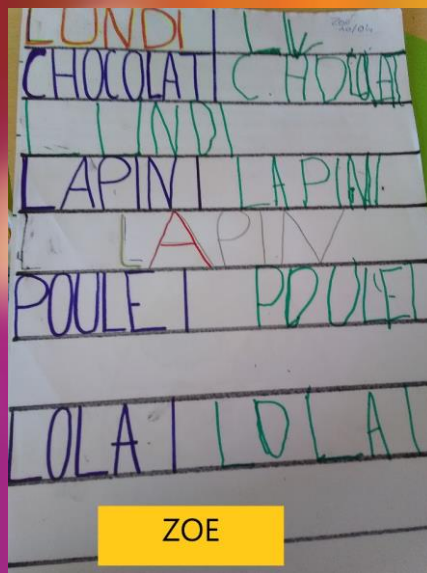 Zoé
LUNDI
CHOCOLAT CHOCOLAT
LUNDI
LAPIN LAPIN
LAPIN
POULE POULE
LOLA LOLA
ZOE